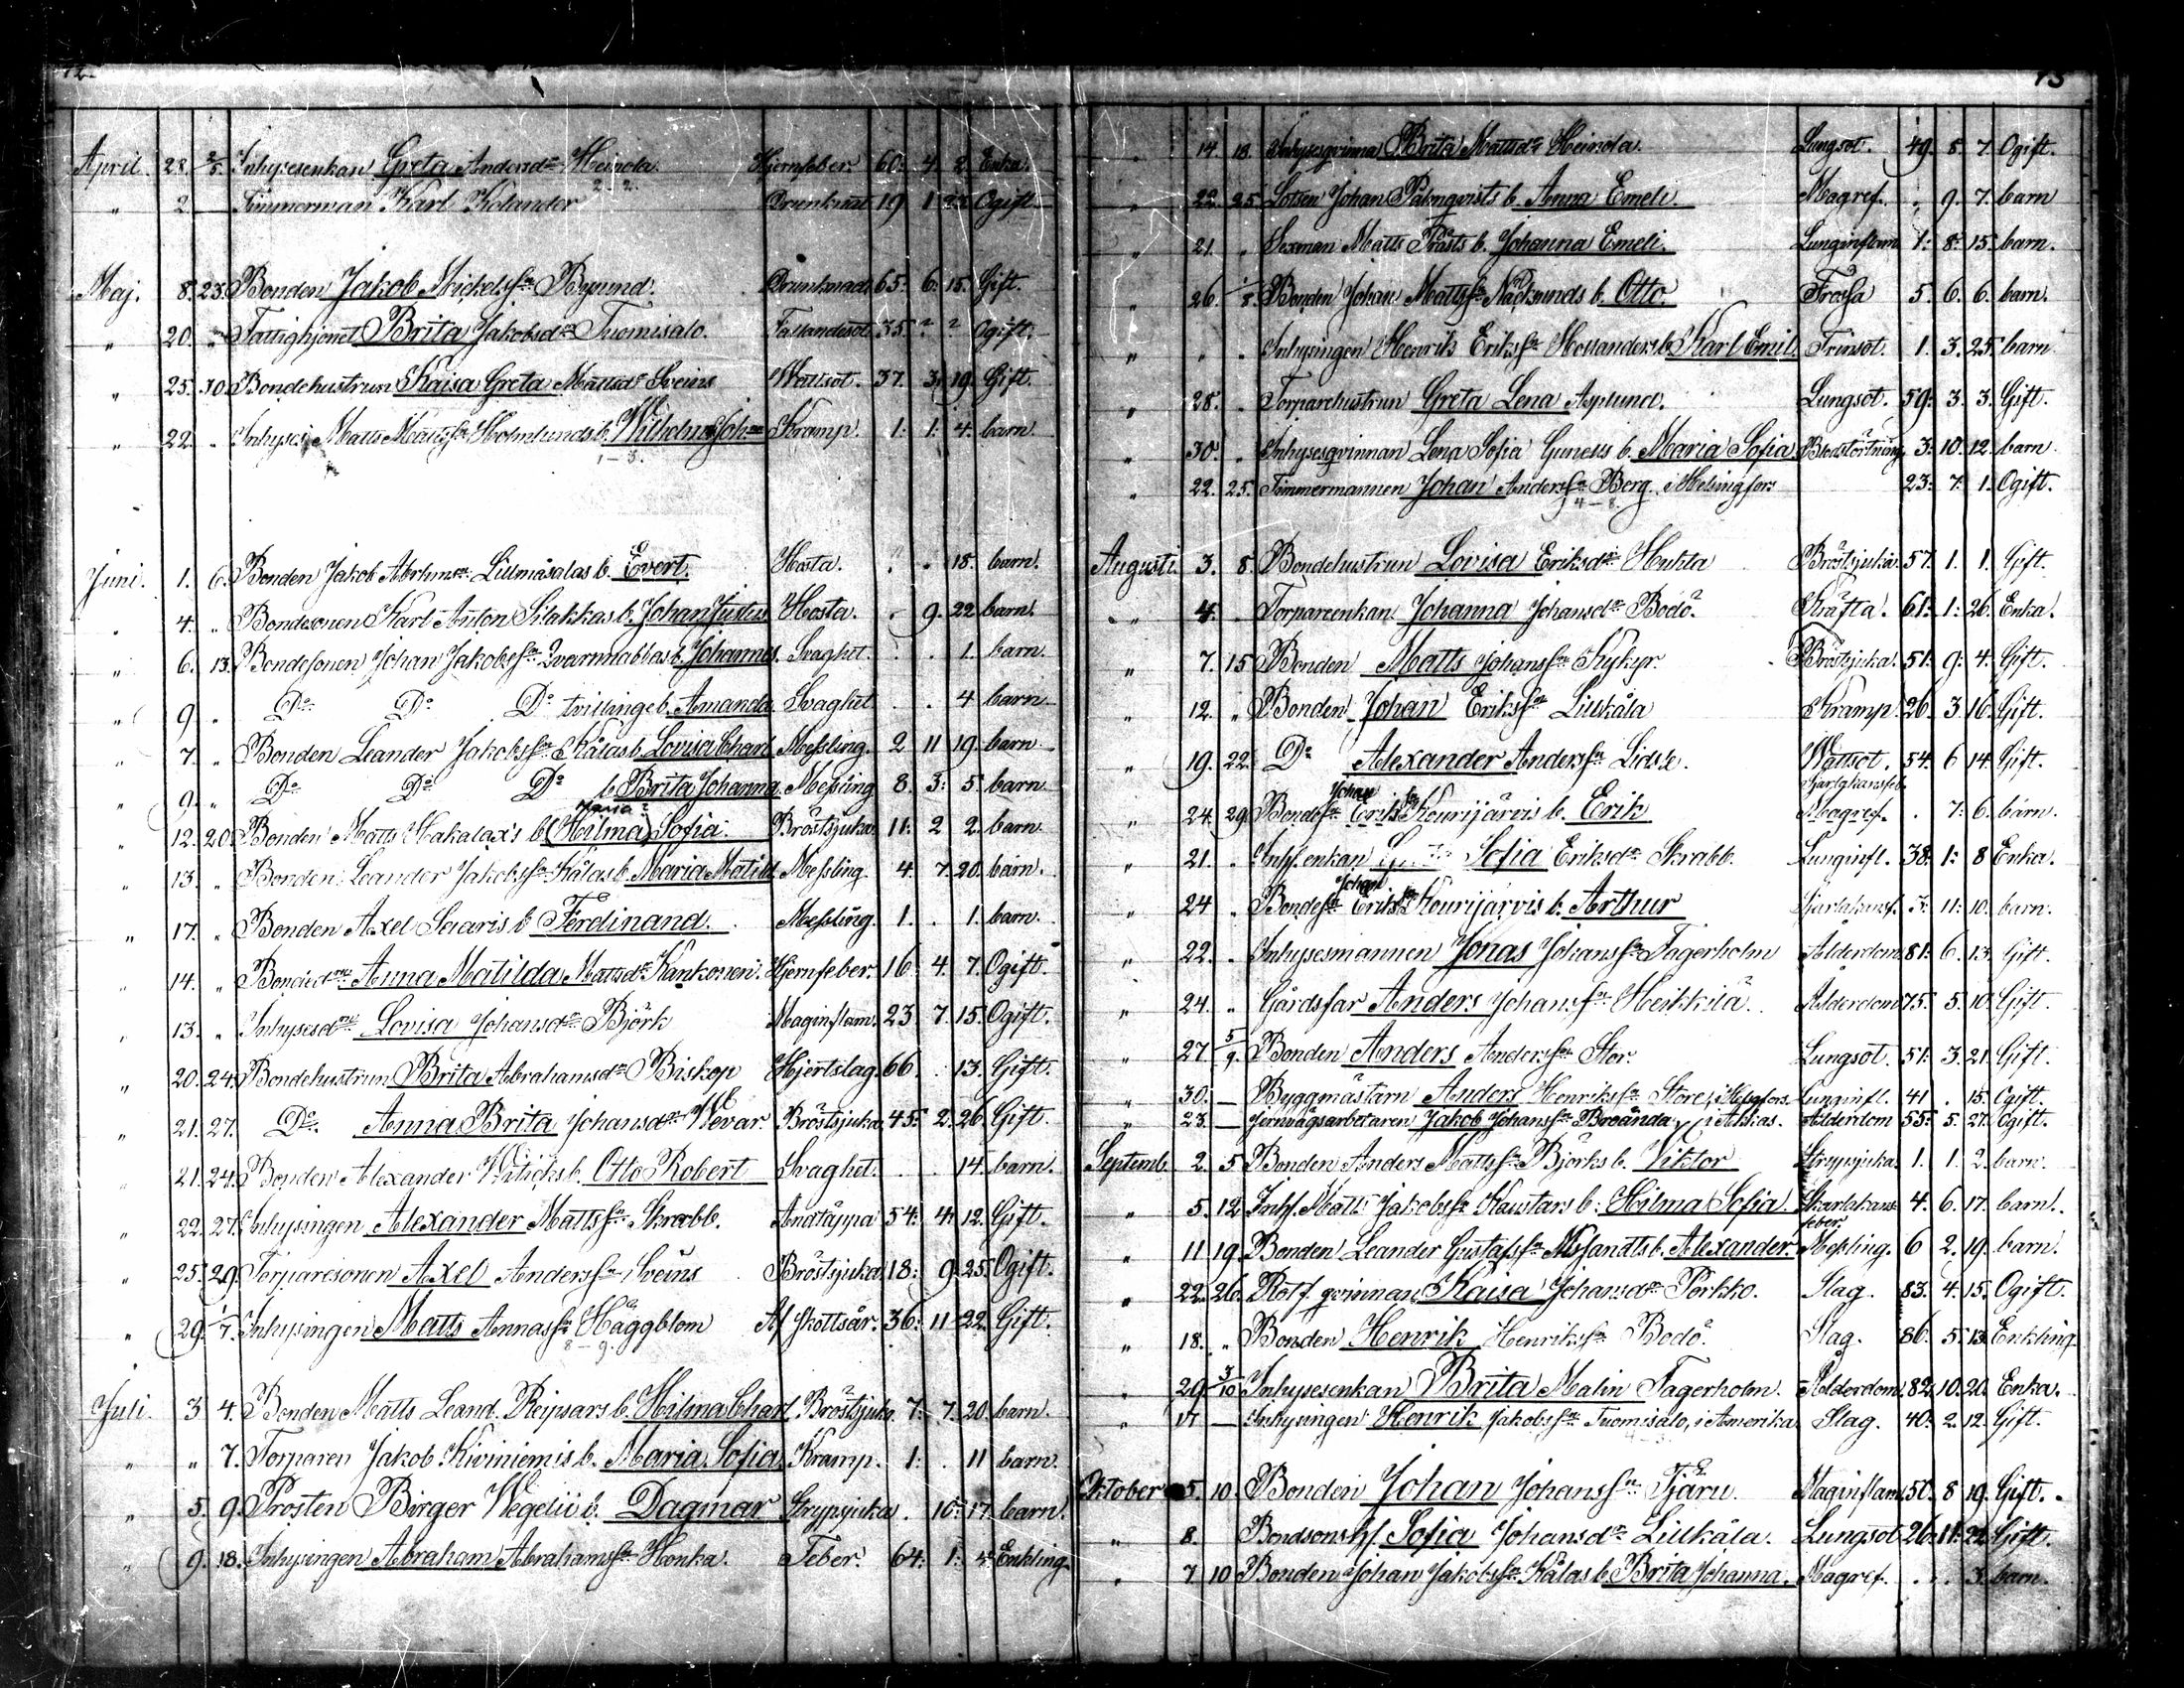 72.
April. 28. 2/5. Inhysesenkan Greta Andersdr Heinola. Hjernfeber. 60. 4. 2. Enka.
" 2. — Timmerman Karl Kolander Drunknat 19 1 23 Ogift
Maj. 8. 23. Bonden Jakob Mickelsson Byjund. Drunknad. 65. 6. 15. Gift.
" 20. " Fattighjonet Brita Jakobsdr Tuomisalo. Fallandesot. 35. ? ? Ogift.
" 25. 30. Bondehustrun Kaisa Greta Mattsdr Sveins Wattsot. 37. 3. 19. Gift.
" 22. " Inhyses: Matts Mattsson Holmlunds b. Wilhelm Joh. Kramp. 1. 1. 4. barn.
1-3.
Juni. 1. 6. Bonden Jakob Abrhmson Lillmåsalas b. Evert. Hosta. . . 18. barn.
" 4. " Bondesonen Karl Anton Silakkas b. Johan Julius Hosta. . 9. 22 barn.
" 6. 13. Bondesonen Johan Jakobsson Qvarnnabbas b. Johannes. Svaghet. . . 1. barn.
" 9. " Do Do Do tvilling b. Amanda Svaghet. . . 4 barn
" 7. " Bonden Leander Jakobsson Kålas b. Lovisa Charl. Messling. 2 11 19. barn
" 9. " Do Do Do b. Brita Johanna. Messling 8. 3. 5. barn
Maria?
" 12. 20. Bonden Matts Hakalax's b. (Hilma) Sofia. Bröstsjuka. 11. 2 2. barn
" 13. " Bonden Leander Jakobsson Kålas b. Maria Matild Messling. 4. 7. 20. barn.
" 17. " Bonden Axel Saaris b. Ferdinand. Messling. 1. . 1. barn.
" 14. " Bondedr Anna Matilda Mattsdr Kankonen. Hjernfeber. 16. 4. 7. Ogift.
" 13. " Inhysesdr Lovisa Johansdr Björk Maginflam. 23 7. 15. Ogift.
" 20. 24. Bondehustrun Brita Abrahamsdr Biskop Hjertslag. 66. . 13. Gift.
" 21. 27. Do. Anna Brita Johansdr Wevar. Bröstsjuka. 45. 2. 26. Gift.
" 21. 24. Bonden Alexander Witicks b. Otto Robert Svaghet. . . 14. barn.
" 22. 27. Inhysingen Alexander Mattsson Skrabb. Andtäppa 54. 4. 12. Gift.
" 25. 29. Torparesonen Axel Andersson Sveins Bröstsjuka 18. 9. 25. Ogift.
" 29. 1/7. Inhysingen Matts Annasson Häggblom Af skottsår. 36. 11 22. Gift.
8-9.
Juli. 3 4. Bonden Matts Leand. Reipsars b. Hilma Charl. Bröstsjuka. 7. 7. 20 barn.
" " 7. Torparen Jakob Kiviniemis b. Maria Sofia. Kramp. 1. . 11 barn.
" 5. 9. Prosten Birger Wegelii b. Dagmar Strypsjuka . 10. 17. barn.
" 9. 18. Inhysingen Abraham Abrahamsson Honka. Feber. 64. 1. 4. Enkling.
73
" 14. 18. Inhysesqvinna Brita Mattsdr Heinola. Lungsot. 49. 8. 7. Ogift.
" 22. 25. Lotsen Johan Palmqvists b. Anna Emeli. Magref. . 9. 7. barn
" 21. " Sexman Matts Prästs b. Johanna Emeli. Lunginflam 1. 8. 15. barn.
" 26. 1/8. Bonden Johan Mattsson Näcksunds b. Otto. Frossa 5. 6. 6. barn.
" " " Inhysingen Henrik Eriksson Hollanders b. Karl Emil. Trinsot. 1. 3. 25. barn
" 28. " Torparehustrun Greta Lena Asplund. Lungsot. 59. 3. 3. Gift.
" 30. " Inhysesqvinnan Lena Sofia Guness b. Maria Sofia. Blodstörtning. 3. 10. 12. barn.
" 22. 25. Timmermannen Johan Andersson Berg. i Helsingfors 23. 7. 1. Ogift.
4-8.
Augusti. 3. 8. Bondehustrun Lovisa Eriksdr Huhta Bröstsjuka. 57. 1. 1. Gift.
" 4. " Torpareenkan Johanna Johansdr Bodö. Kräfta. 61. 1. 26. Enka.
" 7. 15 Bonden Matts Johansson Kykyr. Bröstsjuka. 51. 9. 4. Gift.
" 12. " Bonden Johan Eriksson Lillkåla Kramp 26. 3. 16. Gift.
" 19. 22. Do Alexander Andersson Lidsle. Wattsot. 54. 6 14. Gift.
Johan Skarlakansfeb.
" 24. 29. Bondeson Eriks Kourijärvis b. Erik Magref. . 7. 6. barn.
" 21. " Inh. enkan Sofia Eriksdr Skrabb. Lunginfl. 38. 1. 8 Enka.
Johan
" 24 " Bondeson Eriks Kourijärvis b. Arthur Skarlakansf. 3. 11. 10. barn.
" 22. " Inhysesmannen Jonas Johansson Fagerholm Ålderdom. 81. 6. 13. Gift.
" 24. " Gårdsfar Anders Johansson Heikkilä. Ålderdom 75. 5. 10. Gift.
" 27 5/9. Bonden Anders Andersson Stor. Lungsot. 51. 3. 21. Gift.
" 30. — Byggmästarn Anders Henriksson Store, i Helsgfors. Lunginfl. 41 . 15. Ogift.
" 23. — Jernvägsarbetaren Jakob Johansson Breända, i Alkias. Ålderdom 55. 5. 27. Ogift.
Septemb. 2. 5 Bonden Anders Mattsson Björks b. Viktor Strypsjuka. 1. 1. 2. barn.
" 5. 12 Inh. Matts Jakobsson Kaustars b. Hilma Sofia. Skarlakans feber. 4. 6. 17. barn.
" 11 19. Bonden Leander Gustafsson Nissandts b. Alexander Messling. 6 2. 19. barn.
" 22. 26. Rotf. qvinnan Kaisa Johansdr Porkko. Slag. 83. 4. 15. Ogift.
" 18. " Bonden Henrik Henriksson Bodö. Slag. 86. 5. 13. Enkling.
" 29. 3/10 Inhysesenkan Brita Malin Fagerholm. Ålderdom. 82. 10. 20. Enka.
" 17. — Inhysingen Henrik Jakobsson Tuomisalo, i Amerika. Slag. 40. 2. 12. Gift.
Oktober 5. 10. Bonden Johan Johansson Tjäru. Maginflam 50. 8 19. Gift.
" 8. Bondsonsh. Sofia Johansdr Lillkåla. Lungsot 26. 11. 22. Gift.
" 7 10 Bonden Johan Jakobsson Kålas b. Brita Johanna. Magref. . . 3. barn.